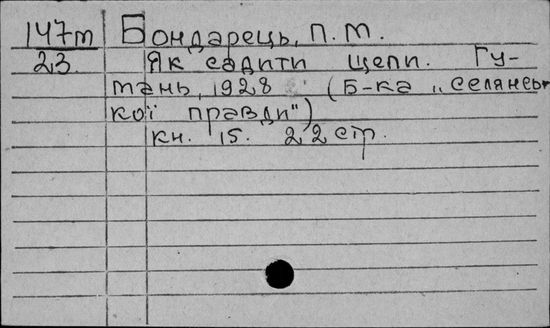 147т Бондарець, П. М.
23. Як садити щепи. Гу-
мань, 1928 (Б-ка „Селянсь-
кої правди")
кн. 15. 22 стр.